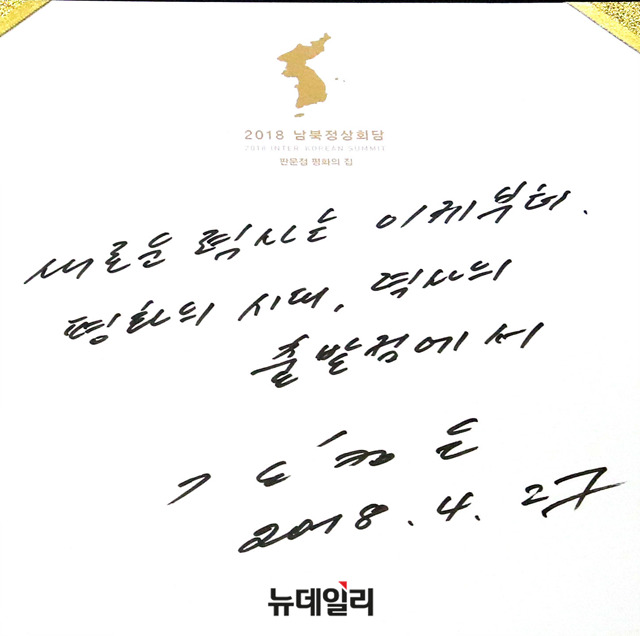 2018 남북정상회담
2018 INTER-KOREAN SUMMIT
판문점 평화의 집
새로운 력사는 이제부터.
평화의 시대, 력사의
출발점에서
김정은
2018. 4. 27
뉴데일리